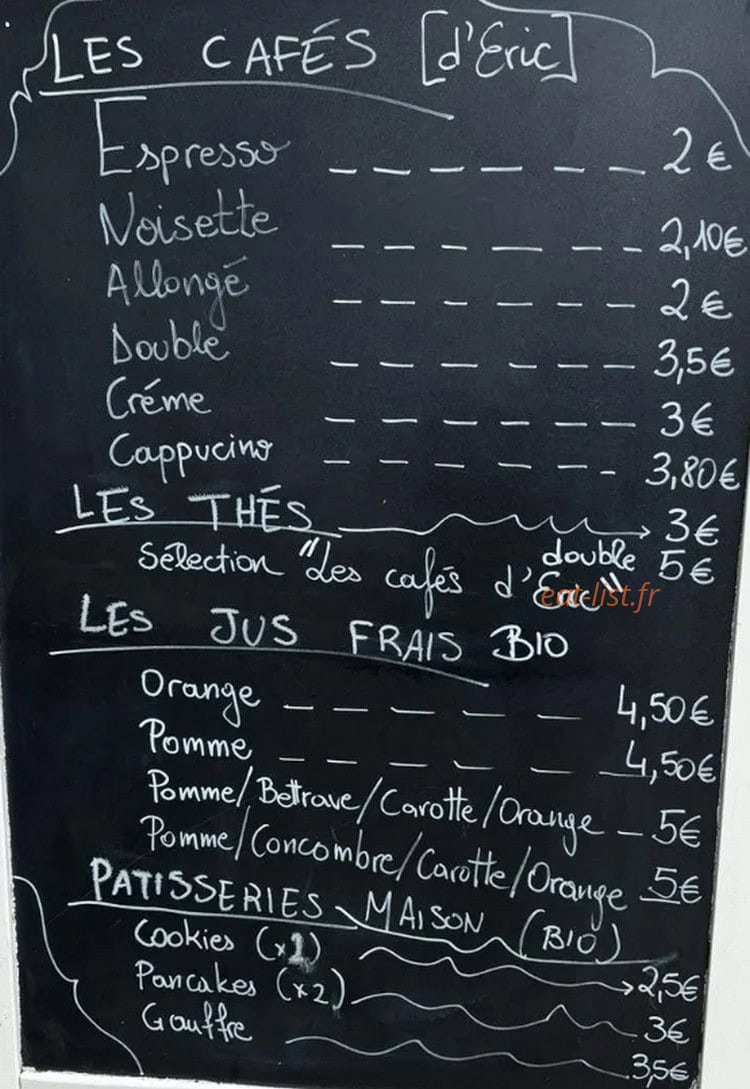 LES CAFÉS [d'Eric]
Espresso _ _ _ _ _ _ 2€
Noisette _ _ _ _ _ _ 2,10€
Allongé _ _ _ _ _ _ 2€
Double _ _ _ _ _ _ 3,5€
Créme _ _ _ _ _ _ 3€
Cappucino _ _ _ _ _ _ 3,80€
LES THÉS 3€
double 5€
Sélection "Les cafés d'Eric"
eat-list.fr
LES JUS FRAIS BIO
Orange _ _ _ _ _ 4,50€
Pomme _ _ _ _ _ 4,50€
Pomme/Bettrave/Carotte/Orange _ 5€
Pomme/Concombre/Carotte/Orange _ 5€
PATISSERIES MAISON (BIO)
Cookies (x1) 2,5€
Pancakes (x2) 3€
Gauffre 3,5€